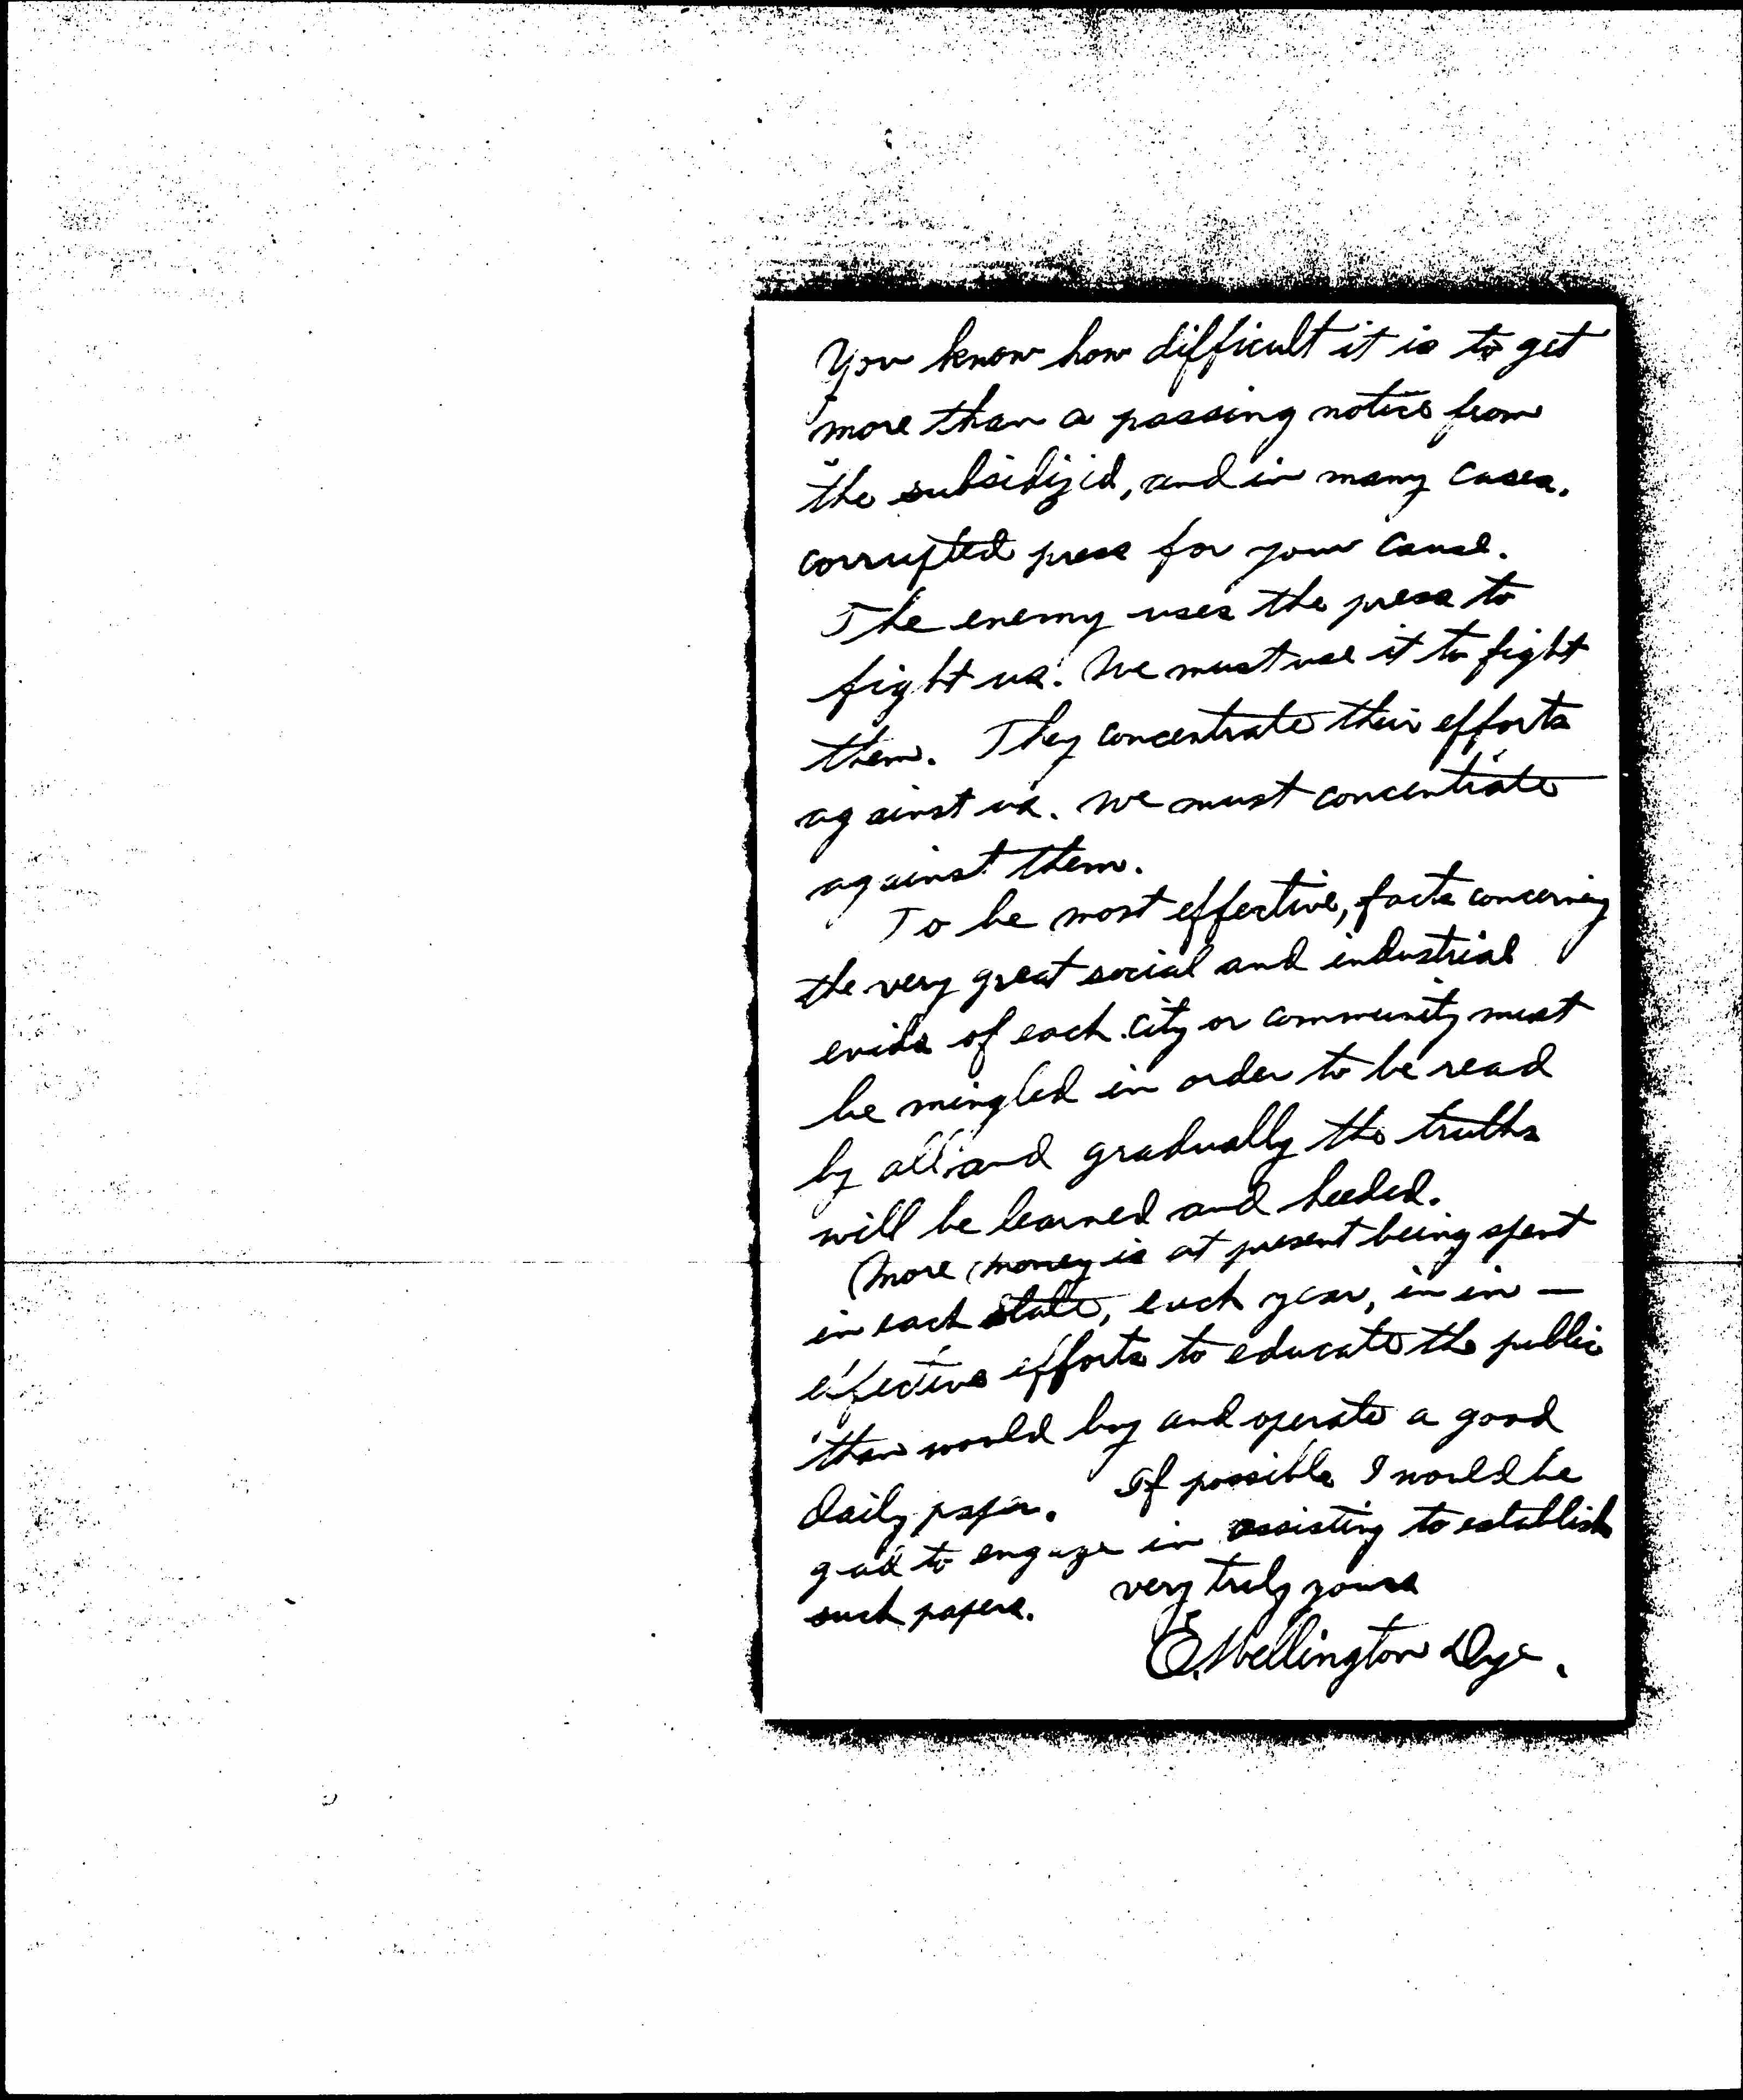 You know how difficult it is to get
more than a passing notice from
the subsidized, and in many cases,
corrupted press for your cause.
The enemy uses the press to
fight us. We must use it to fight
them. They concentrate their efforts
against us. We must concentrate
against them.
To be most effective, facts concerning
the very great social and industrial
evils of each city or community must
be mingled in order to be read
by all and gradually the truths
will be learned and heeded.
More money is at present being spent
in each state, each year, in in-
effective efforts to educate the public
than would buy and operate a good
daily paper. If possible I would be
glad to engage in assisting to establish
such papers. very truly yours
E. Wellington Dye.